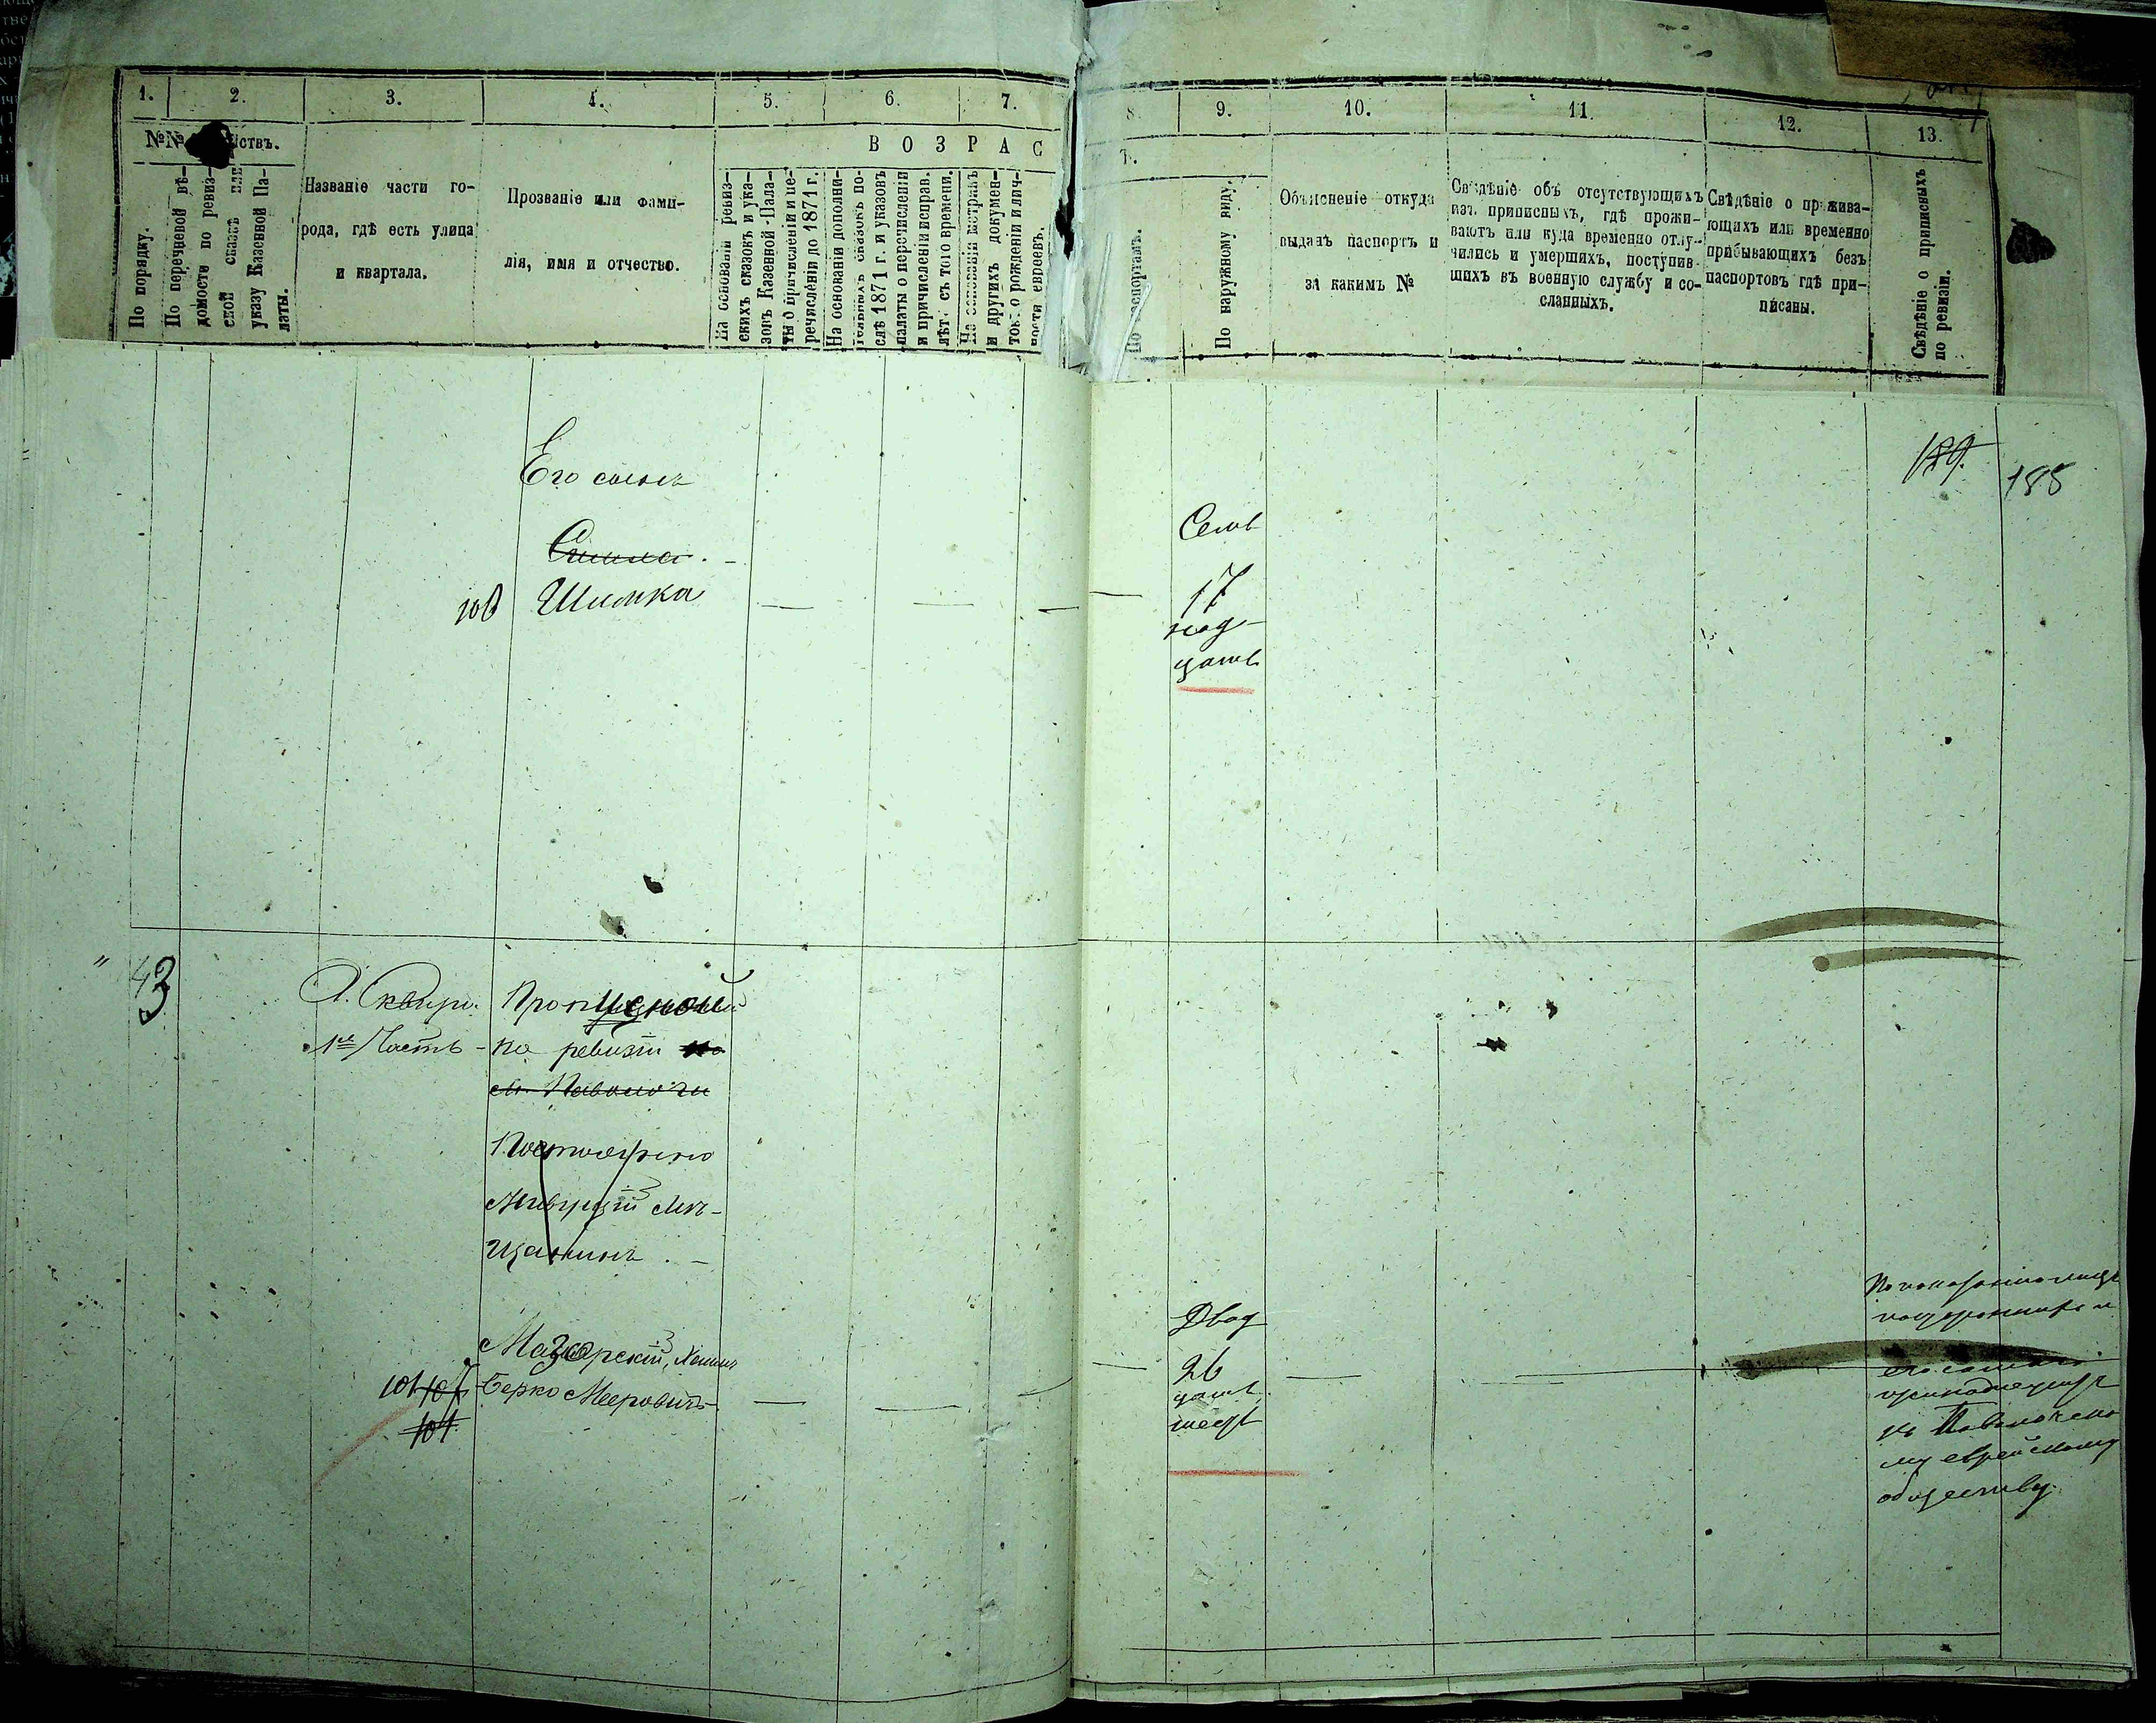 1. 2. 3. 4. 5. 6. 7. 8. 9. 10. 11. 12. 13.
№№ йствъ.
В О З Р А С
Т.
По порядку.
По перечневой вѣ-
домости по ревиз-
ской сказкѣ или
указу Казенной Па-
латы.
Названіе части го-
рода, гдѣ есть улица
и квартала.
Прозваніе или фами-
лія, имя и отчество.
На основаніи ревиз-
скихъ сказокъ и ука-
зовъ Казенной Пала-
ты о причисленіи и пе-
речисленіи до 1871 г.
На основаніи дополни-
тельныхъ сказокъ по-
слѣ 1871 г. и указовъ
палаты о перечисленіи
и причисленіи исправ.
лѣт. съ того времени.
На основаніи метрикъ
и других докумен-
тов: о рожденіи и лич-
ности евреевъ.
По паспортамъ.
По наружному виду.
Объясненіе откуда
выданъ паспортъ и
за какимъ №
Свѣдѣніе объ отсутствующихъ
изъ приписныхъ, гдѣ прожи-
ваютъ или куда временно отлу-
чились и умершихъ, поступив-
шихъ въ военную службу и со-
сланныхъ.
Свѣдѣніе о прожива-
ющихъ или временно
прибывающихъ безъ
паспортовъ гдѣ при-
писаны.
Свѣдѣніе о приписныхъ
по ревизіи.
189.
188
Его сынъ
Семь
108 Шимка
17
над-
цать
43
Сквира
1я Часть
Пропущеной
по ревизіи по
м. Паволочи
Постоянно
Живущій Мѣ-
щанинъ. -
Мазярскій,
101 107 Берко Мееровичъ
104
Двад
26
цать
шесть
По показанію лицъ
постороннихъ и
его самого
принадлежитъ
къ Паволочско
му еврейскому
обществу.